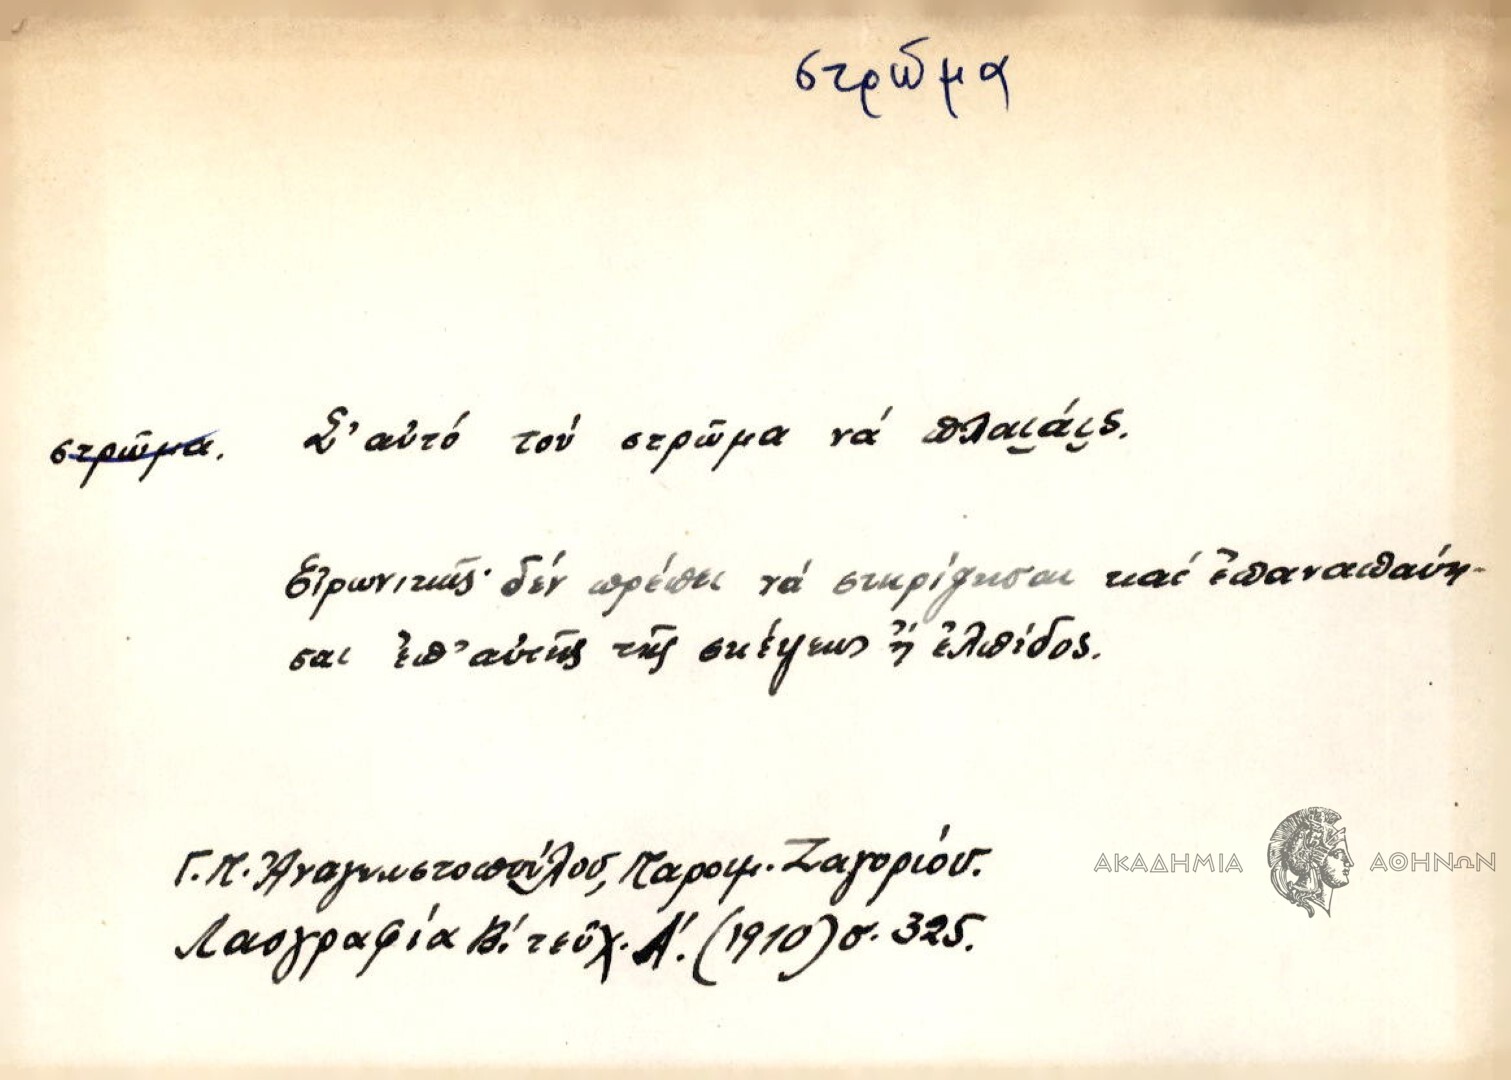 στρῶμα
στρῶμα. Σ' αὐτό τού στρῶμα νά πλαι̯άι̯ς.
Εἰρωνικῆς· δέν πρέπει νά στηρίζησαι καί ἐπαναπαύη-
σαι ἐπ' αὐτῆς τῆς σκέψεως ἤ ἐλπίδος.
Γ. Π. Ἀναγνωστοπούλου, Παροιμ. Ζαγορίου.
Λαογραφία Β΄. τεῦχ. Α΄. (1910) σ. 325.
ΑΚΑΔΗΜΙΑ ΑΘΗΝΩΝ